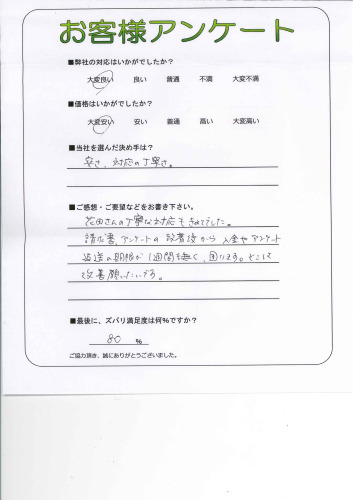 お客様アンケート
■弊社の対応はいかがでしたか?
大変良い 良い 普通 不満 大変不満
■価格はいかがでしたか?
大変安い 安い 普通 高い 大変高い
■当社を選んだ決め手は?
安さ、対応の丁寧さ。
■ご感想・ご要望などをお書き下さい。
花田さんの丁寧な対応も きめてでした。
請求書、アンケートの 改着後から 入金やアンケート
返送の期限が1週間も無く、困ります。そこは
改善願いたいです。
■最後に、ズバリ満足度は何%ですか?
80 %
ご協力頂き、誠にありがとうございました。